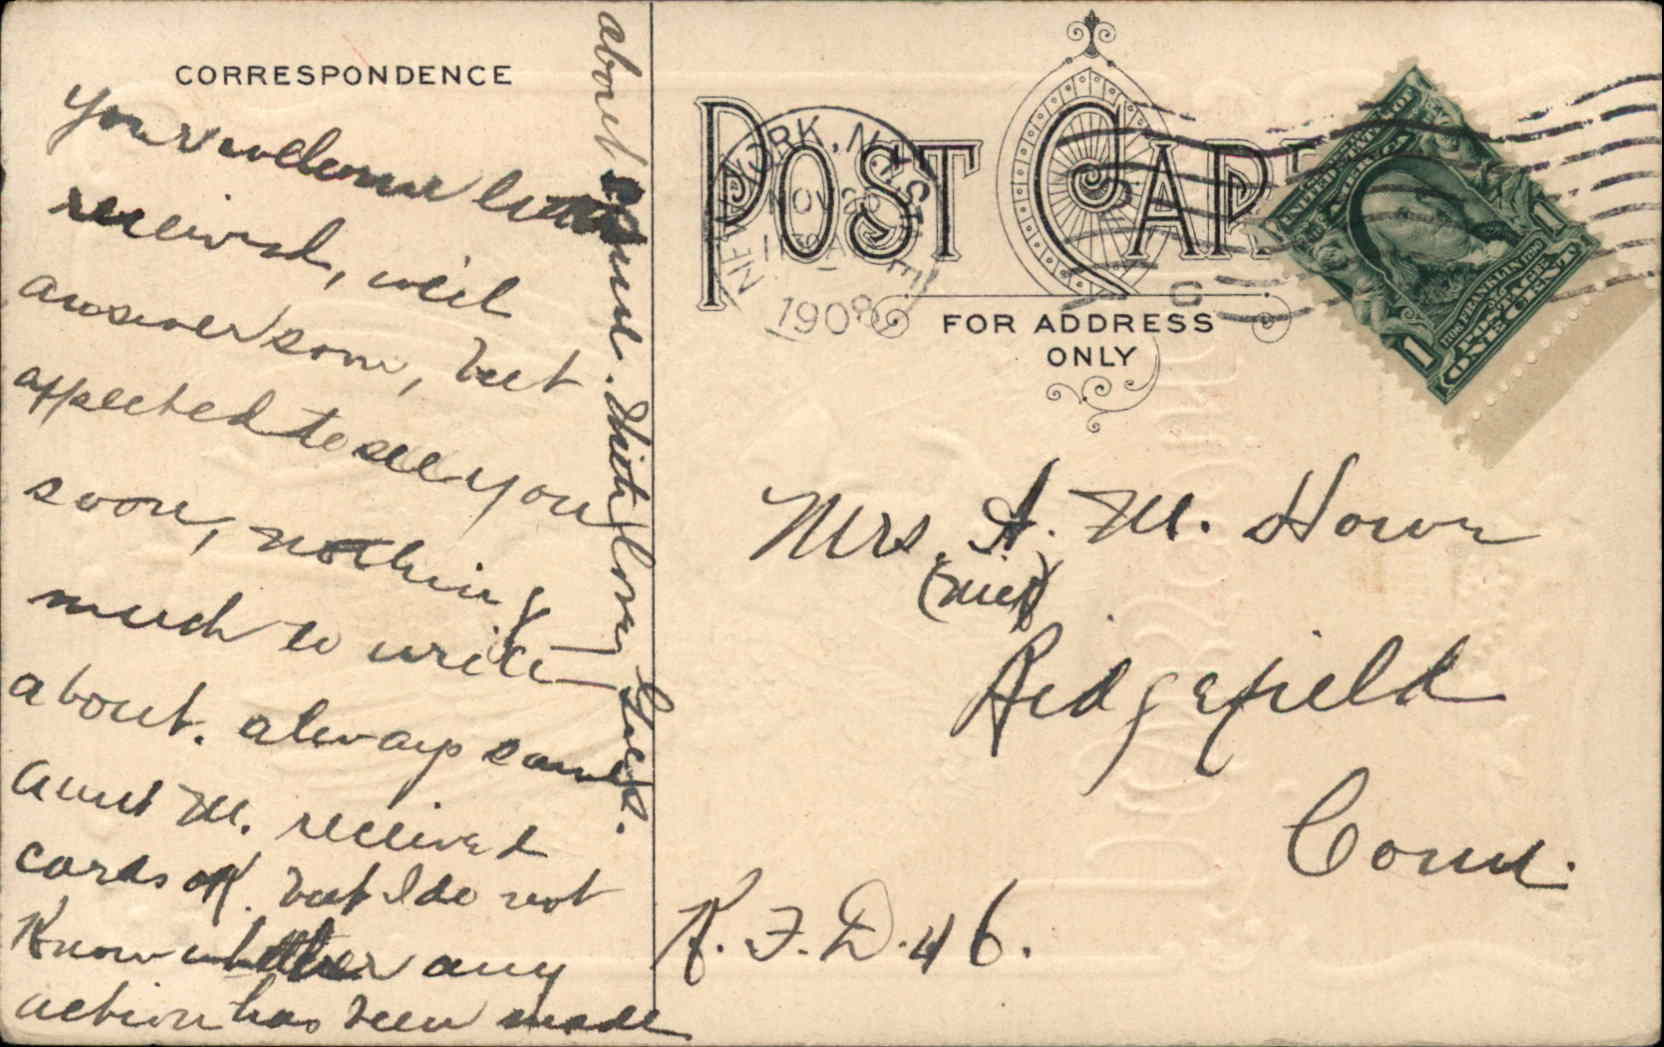 CORRESPONDENCE
Your welcome letter
received, will
answer soon, but
expected to see you
soon, nothing
much to write
about. always same
aunt M. received
cards OK. but I do not
know whether any
action has been made
about same. With love
POST CARD
FOR ADDRESS
ONLY
NEW YORK, N.Y. STA.
NOV
1908
C
UNITED STATES OF
AMERICA
SERIES 1902
BEN FRANKLIN 1790
POSTAGE
ONE CENT
1 1
Mrs. A. M. Howe
Ridgefield
Conn.
R. F. D. 46.